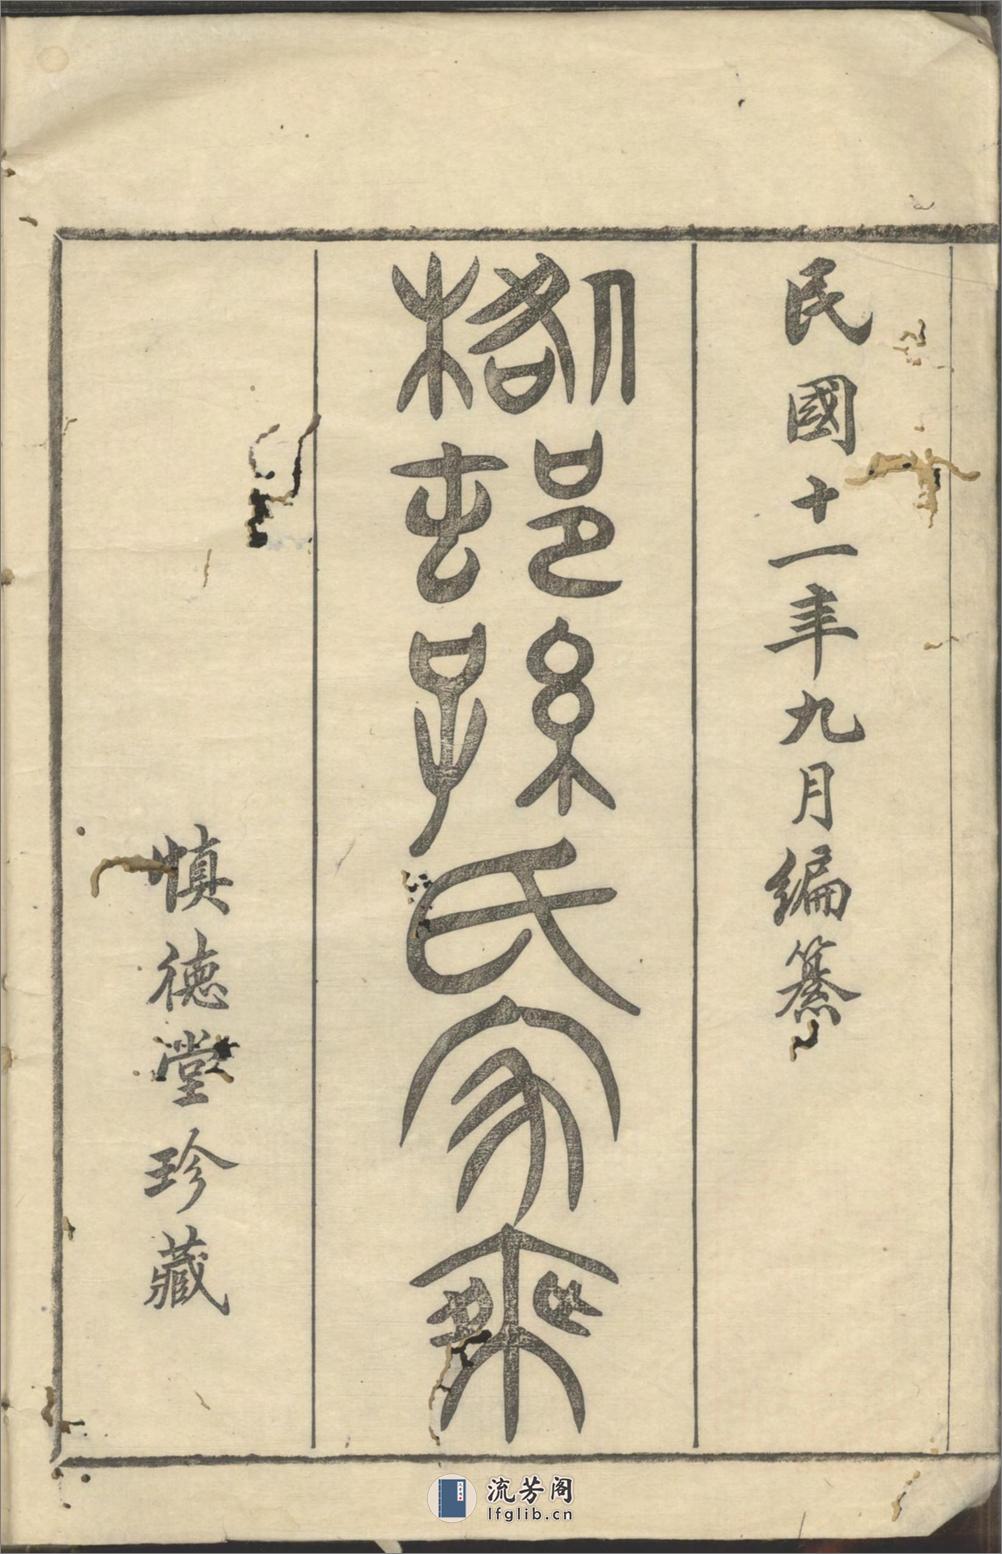 民國十一年九月編纂
孫氏家乘
慎德堂珍藏
流芳阁
lfglib.cn